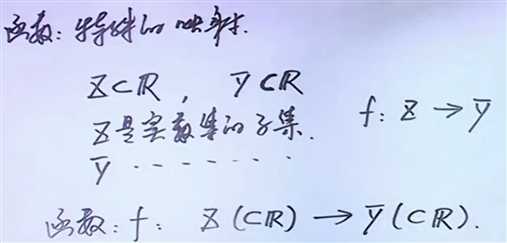 函数：特殊的映射.
X⊂R , Y⊂R
X是实数集的子集. f: X → Y
Y · · · · · · · ·
函数: f: X (⊂R) → Y (⊂R).